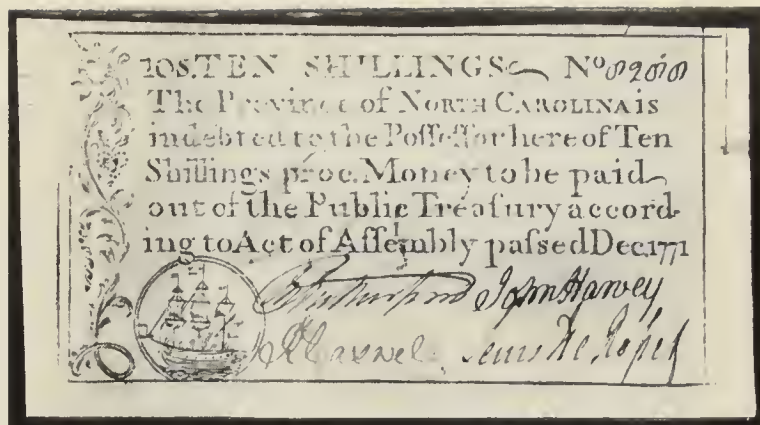 10S.TEN SHILLINGS No 8288
The Province of NORTH CAROLINA is
indebted to the Poſſeſſor here of Ten
Shillings proc. Money to be paid
out of the Public Treaſury accord-
ing to Act of Aſſembly paſſed Dec. 1771
John Harvey
Caswel Lewis De Roſſet